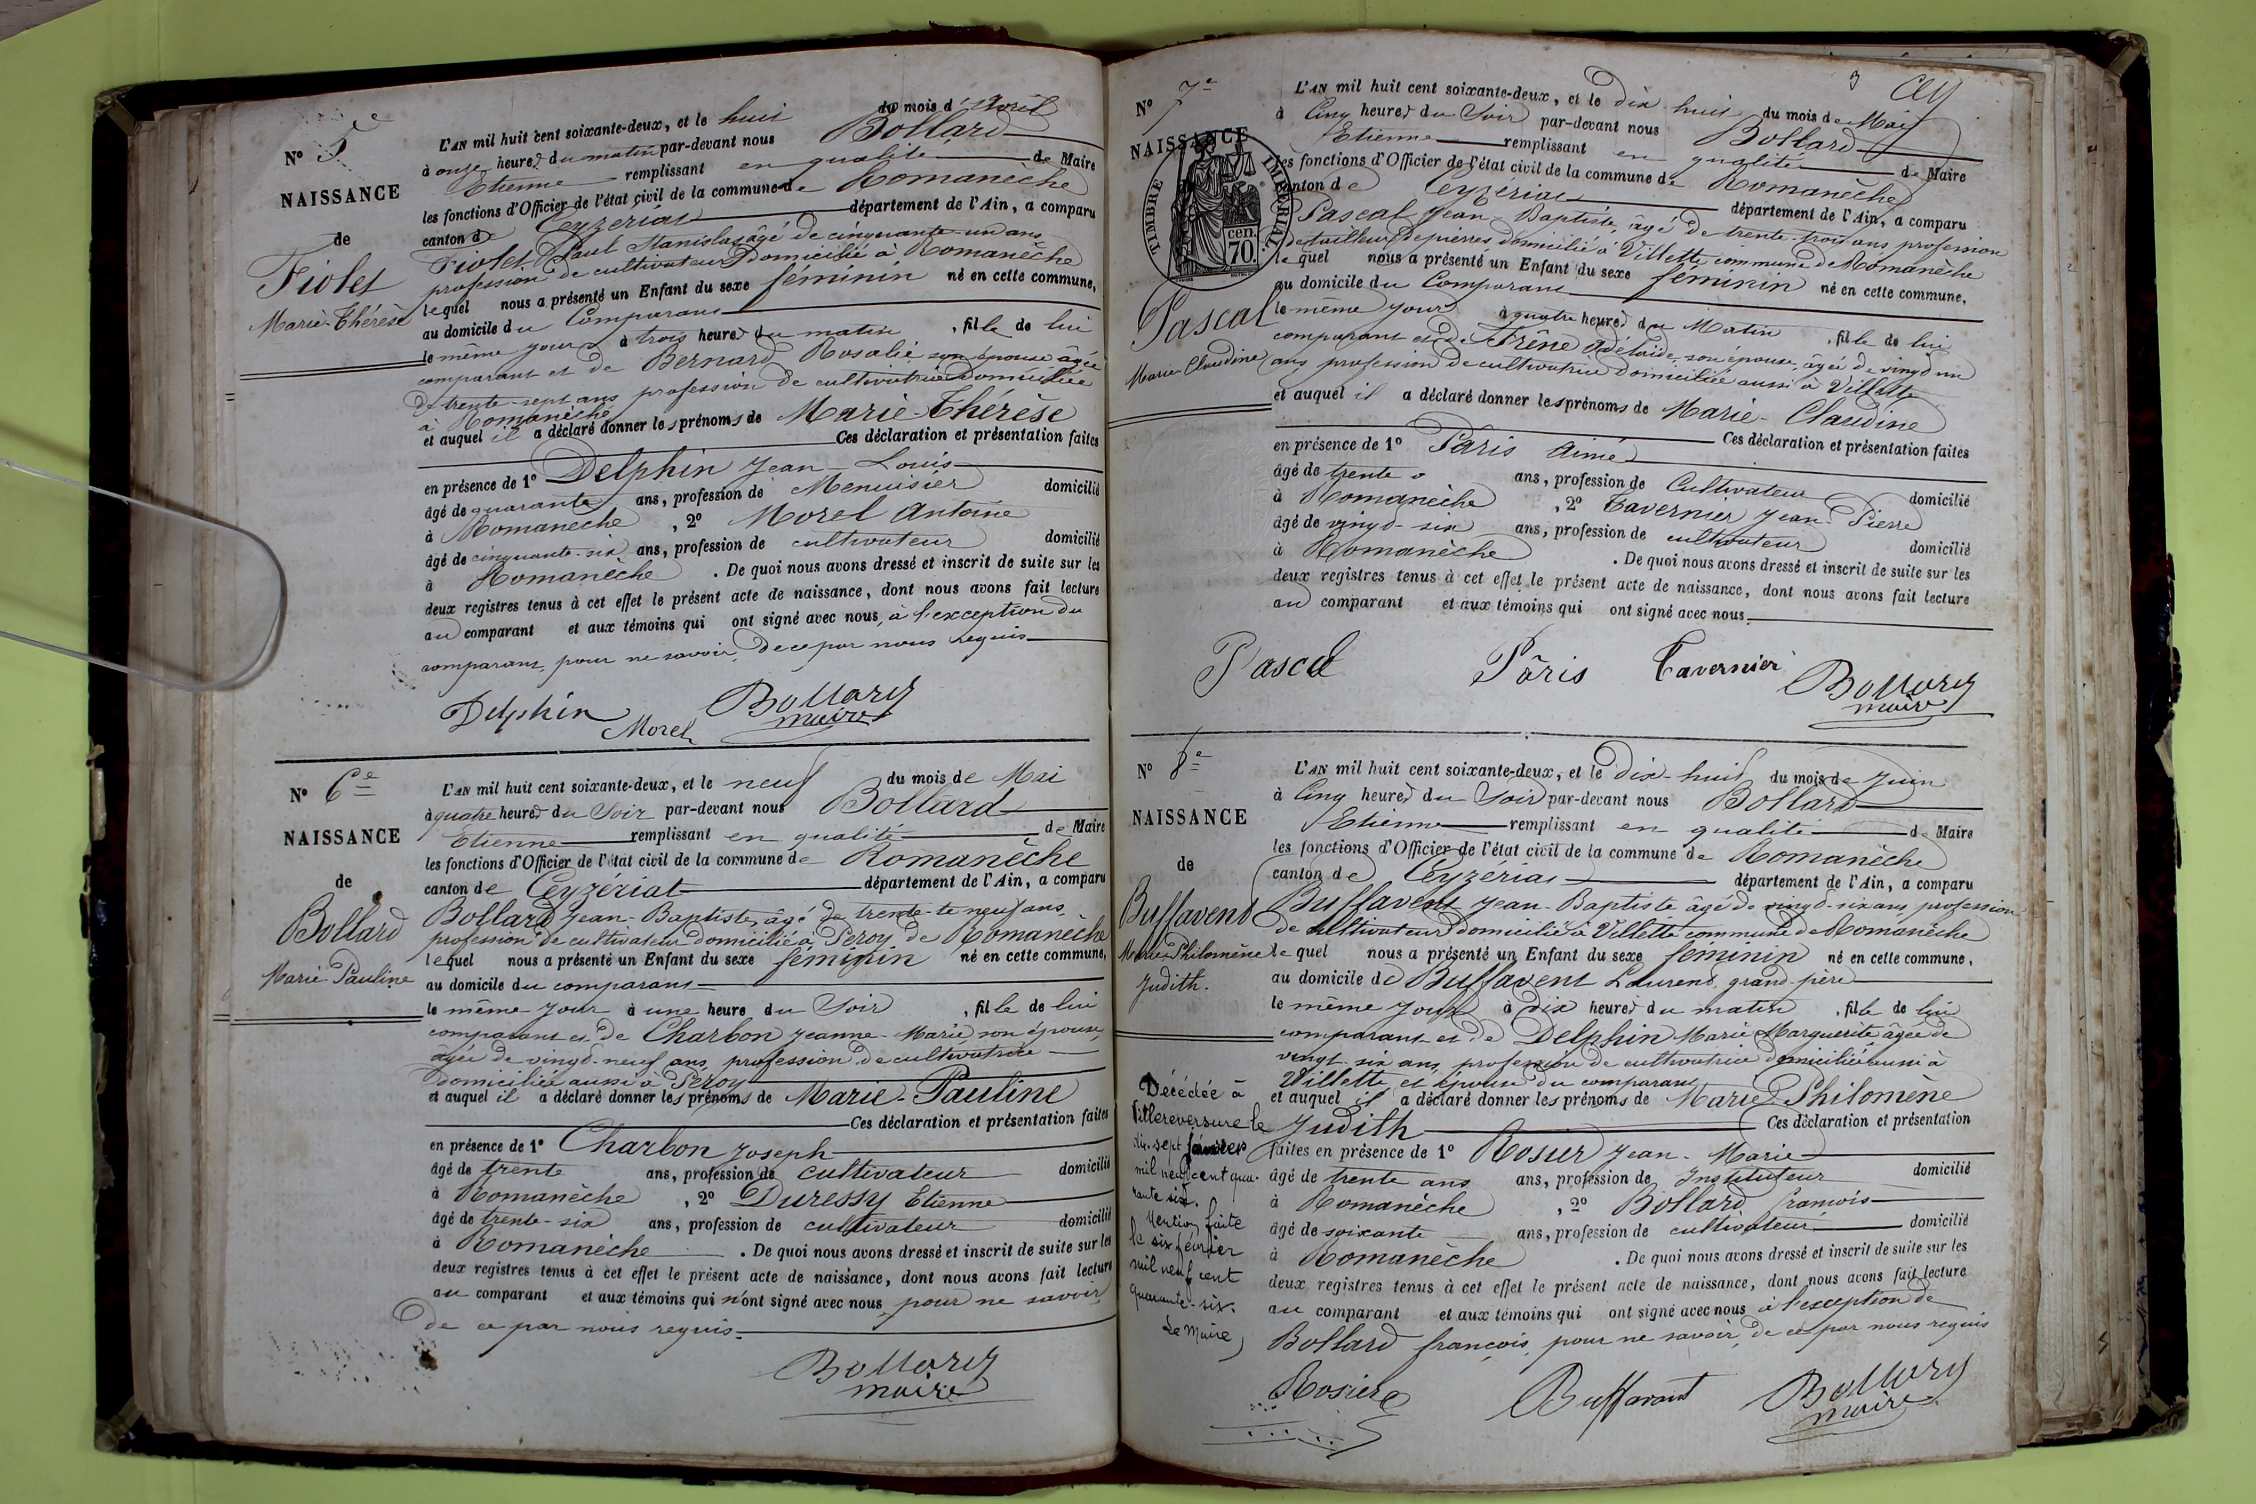 N° 5e
NAISSANCE
de
Fiolet
Marie-Thérèse
L'AN mil huit cent soixante-deux, et le huit du mois d'Avril
à onze heures du matin par-devant nous Bollard
Etienne remplissant en qualité de Maire
les fonctions d'Officier de l'état civil de la commune de Romanèche
canton de Ceyzériat département de l'Ain, a comparu
Fiolet Paul Stanislas âgé de cinquante-un ans
profession de cultivateur domicilié à Romanèche
lequel nous a présenté un Enfant du sexe féminin né en cette commune,
au domicile du Comparant
le même jour à trois heures du matin, fille de lui
comparant et de Bernard Rosalie son épouse âgée
de trente-sept ans profession de cultivatrice domiciliée
à Romanèche
et auquel il a déclaré donner les prénoms de Marie-Thérèse
Ces déclaration et présentation faites
en présence de 1° Delphin Jean-Louis
âgé de quarante ans, profession de Menuisier domicilié
à Romanèche, 2° Morel Antoine
âgé de cinquante-six ans, profession de cultivateur domicilié
à Romanèche. De quoi nous avons dressé et inscrit de suite sur les
deux registres tenus à cet effet le présent acte de naissance, dont nous avons fait lecture
au comparant et aux témoins qui ont signé avec nous, à l'exception du
comparant, pour ne savoir, de ce par nous requis
Delphin Morel Bollard
maire
N° 6e
NAISSANCE
de
Bollard
Marie Pauline
L'AN mil huit cent soixante-deux, et le neuf du mois de Mai
à quatre heures du Soir par-devant nous Bollard
Etienne remplissant en qualité de Maire
les fonctions d'Officier de l'état civil de la commune de Romanèche
canton de Ceyzériat département de l'Ain, a comparu
Bollard Jean-Baptiste, âgé de trente-te neuf ans
profession de cultivateur domicilié à Peroy de Romanèche
lequel nous a présenté un Enfant du sexe féminin né en cette commune,
au domicile du comparant
le même jour à une heure du Soir, fille de lui
comparant et de Charbon Jeanne-Marie son épouse,
âgée de vingt-neuf ans, profession de cultivatrice
domiciliée aussi à Peroy
et auquel il a déclaré donner les prénoms de Marie-Pauline
Ces déclaration et présentation faites
en présence de 1° Charbon Joseph
âgé de trente ans, profession de cultivateur domicilié
à Romanèche, 2° Duressy Etienne
âgé de trente-six ans, profession de cultivateur domicilié
à Romanèche. De quoi nous avons dressé et inscrit de suite sur les
deux registres tenus à cet effet le présent acte de naissance, dont nous avons fait lecture
au comparant et aux témoins qui n'ont signé avec nous, pour ne savoir,
de ce par nous requis.
Bollard
maire
3
N° 7e
NAISSANCE
TIMBRE IMPÉRIAL
cen.
70.
Pascal
Marie-Claudine
L'AN mil huit cent soixante-deux, et le dix-huit du mois de Mai
à Cinq heures du Soir par-devant nous Bollard
Etienne remplissant en qualité de Maire
les fonctions d'Officier de l'état civil de la commune de Romanèche
canton de Ceyzériat département de l'Ain, a comparu
Pascal Jean-Baptiste, âgé de trente-trois ans profession
de tailleur de pierres domicilié à Villette commune de Romanèche
lequel nous a présenté un Enfant du sexe féminin né en cette commune,
au domicile du Comparant
le même jour à quatre heures du Matin, fille de lui
comparant et de Frêne Adélaïde, son épouse, âgée de vingt un
ans profession de cultivatrice domiciliée aussi à Villette
et auquel il a déclaré donner les prénoms de Marie-Claudine
Ces déclaration et présentation faites
en présence de 1° Pâris Aimé
âgé de trente ans, profession de Cultivateur domicilié
à Romanèche, 2° Tavernier Jean-Pierre
âgé de vingt-six ans, profession de cultivateur domicilié
à Romanèche. De quoi nous avons dressé et inscrit de suite sur les
deux registres tenus à cet effet le présent acte de naissance, dont nous avons fait lecture
au comparant et aux témoins qui ont signé avec nous.
Pascal Pâris Tavernier Bollard
maire
N° 8e
NAISSANCE
de
Buffavent
Marie-Philomène
Judith.
L'AN mil huit cent soixante-deux, et le dix-huit du mois de Juin
à Cinq heures du Soir par-devant nous Bollard
Etienne remplissant en qualité de Maire
les fonctions d'Officier de l'état civil de la commune de Romanèche
canton de Ceyzériat département de l'Ain, a comparu
Buffavent Jean-Baptiste âgé de vingt-six ans, profession
de cultivateur domicilié à Villette commune de Romanèche
lequel nous a présenté un Enfant du sexe féminin né en cette commune,
au domicile de Buffavent Laurent, grand-père
le même jour à dix heures du matin, fille de lui
comparant et de Delphin Marie Marguerite, âgée de
vingt-six ans, profession de cultivatrice domiciliée aussi à
Villette, et épouse du comparant
et auquel il a déclaré donner les prénoms de Marie Philomène
Judith Ces déclaration et présentation
faites en présence de 1° Rosier Jean-Marie
âgé de trente ans ans, profession de Instituteur domicilié
à Romanèche, 2° Bollard François
âgé de soixante ans, profession de cultivateur domicilié
à Romanèche. De quoi nous avons dressé et inscrit de suite sur les
deux registres tenus à cet effet le présent acte de naissance, dont nous avons fait lecture
au comparant et aux témoins qui ont signé avec nous à l'exception de
Bollard françois, pour ne savoir, de ce par nous requis
Rosier Buffavent Bollard
maire
Décédée à
Villereversure le
dix-sept janvier
mil neuf cent qua-
rante six.
Mention faite
le six février
mil neuf cent
quarante-six.
Le Maire,